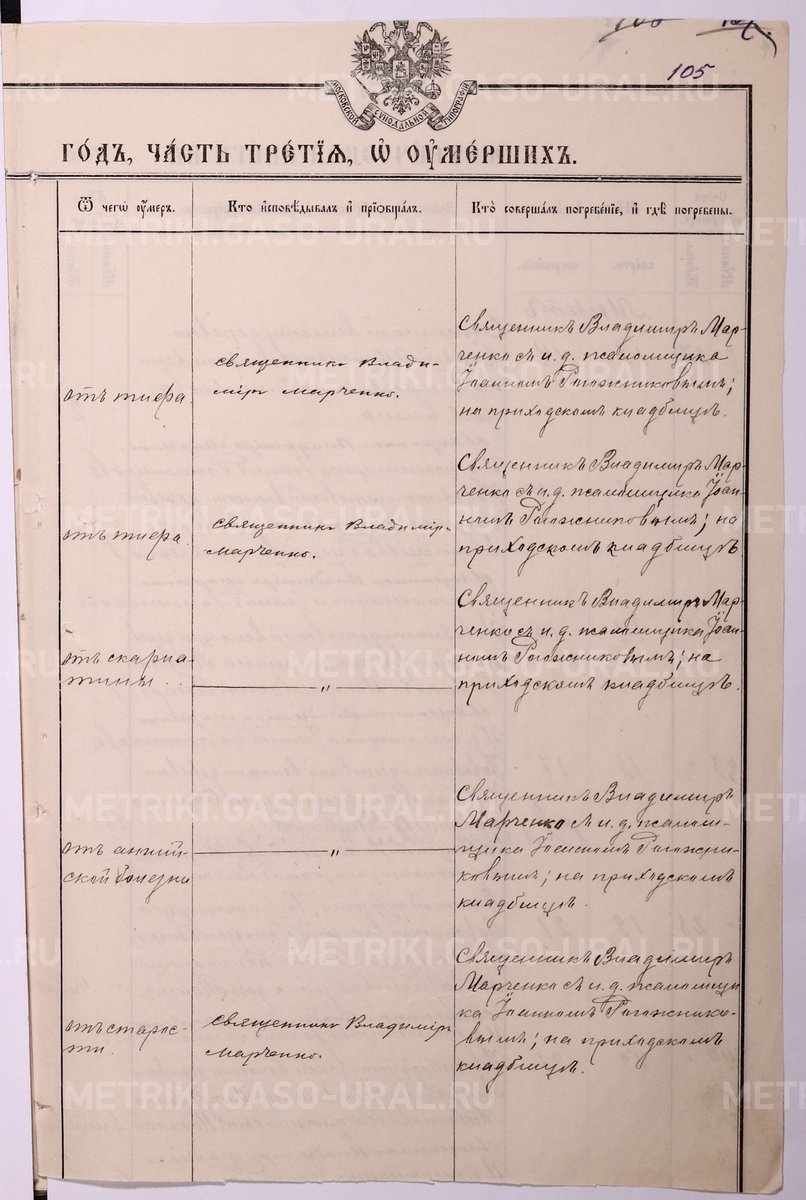 105
МОСКОВСКОЙ СѴНОДАЛЬНОЙ ТИПОГРАФІИ
ГО́ДЪ, ЧА́СТЬ ТРЕ́ТІѦ, Ѡ҆ ОУ҆МЕ́РШИХЪ.
Ѿ чегѡ̀ оу҆́меръ.
Кто̀ и҆сповѣ́дывалъ и҆ прїѡбща́лъ.
Кто̀ соверша́лъ погребе́нїе, и҆ гдѣ̀ погребены̀.
отъ тифа.
священникъ Влади-
міръ Марченко.
Священникъ Владиміръ Мар-
ченко съ и. д. псаломщика
Іоанномъ Рагожниковымъ;
на приходскомъ кладбищѣ.
отъ тифа.
священникъ Владиміръ
Марченко.
Священникъ Владиміръ Мар-
ченко съ и. д. псаломщика Іоан-
номъ Рагожниковымъ; на
приходскомъ кладбищѣ
отъ скарла-
тины.
— " —
Священникъ Владиміръ Мар-
ченко съ и. д. псаломщика Іоан-
номъ Рагожниковымъ; на
приходскомъ кладбищѣ.
отъ англій-
ской болезни
— " —
Священникъ Владиміръ
Марченко съ и. д. псалом-
щика Іоанномъ Рагожни-
ковымъ; на приходскомъ
кладбищѣ.
отъ старос-
ти.
священникъ Владиміръ
Марченко.
Священникъ Владиміръ
Марченко съ и. д. псаломщи
ка Іоанномъ Рагожнико-
вымъ; на приходскомъ
кладбищѣ.
METRIKI.GASO-URAL.RU